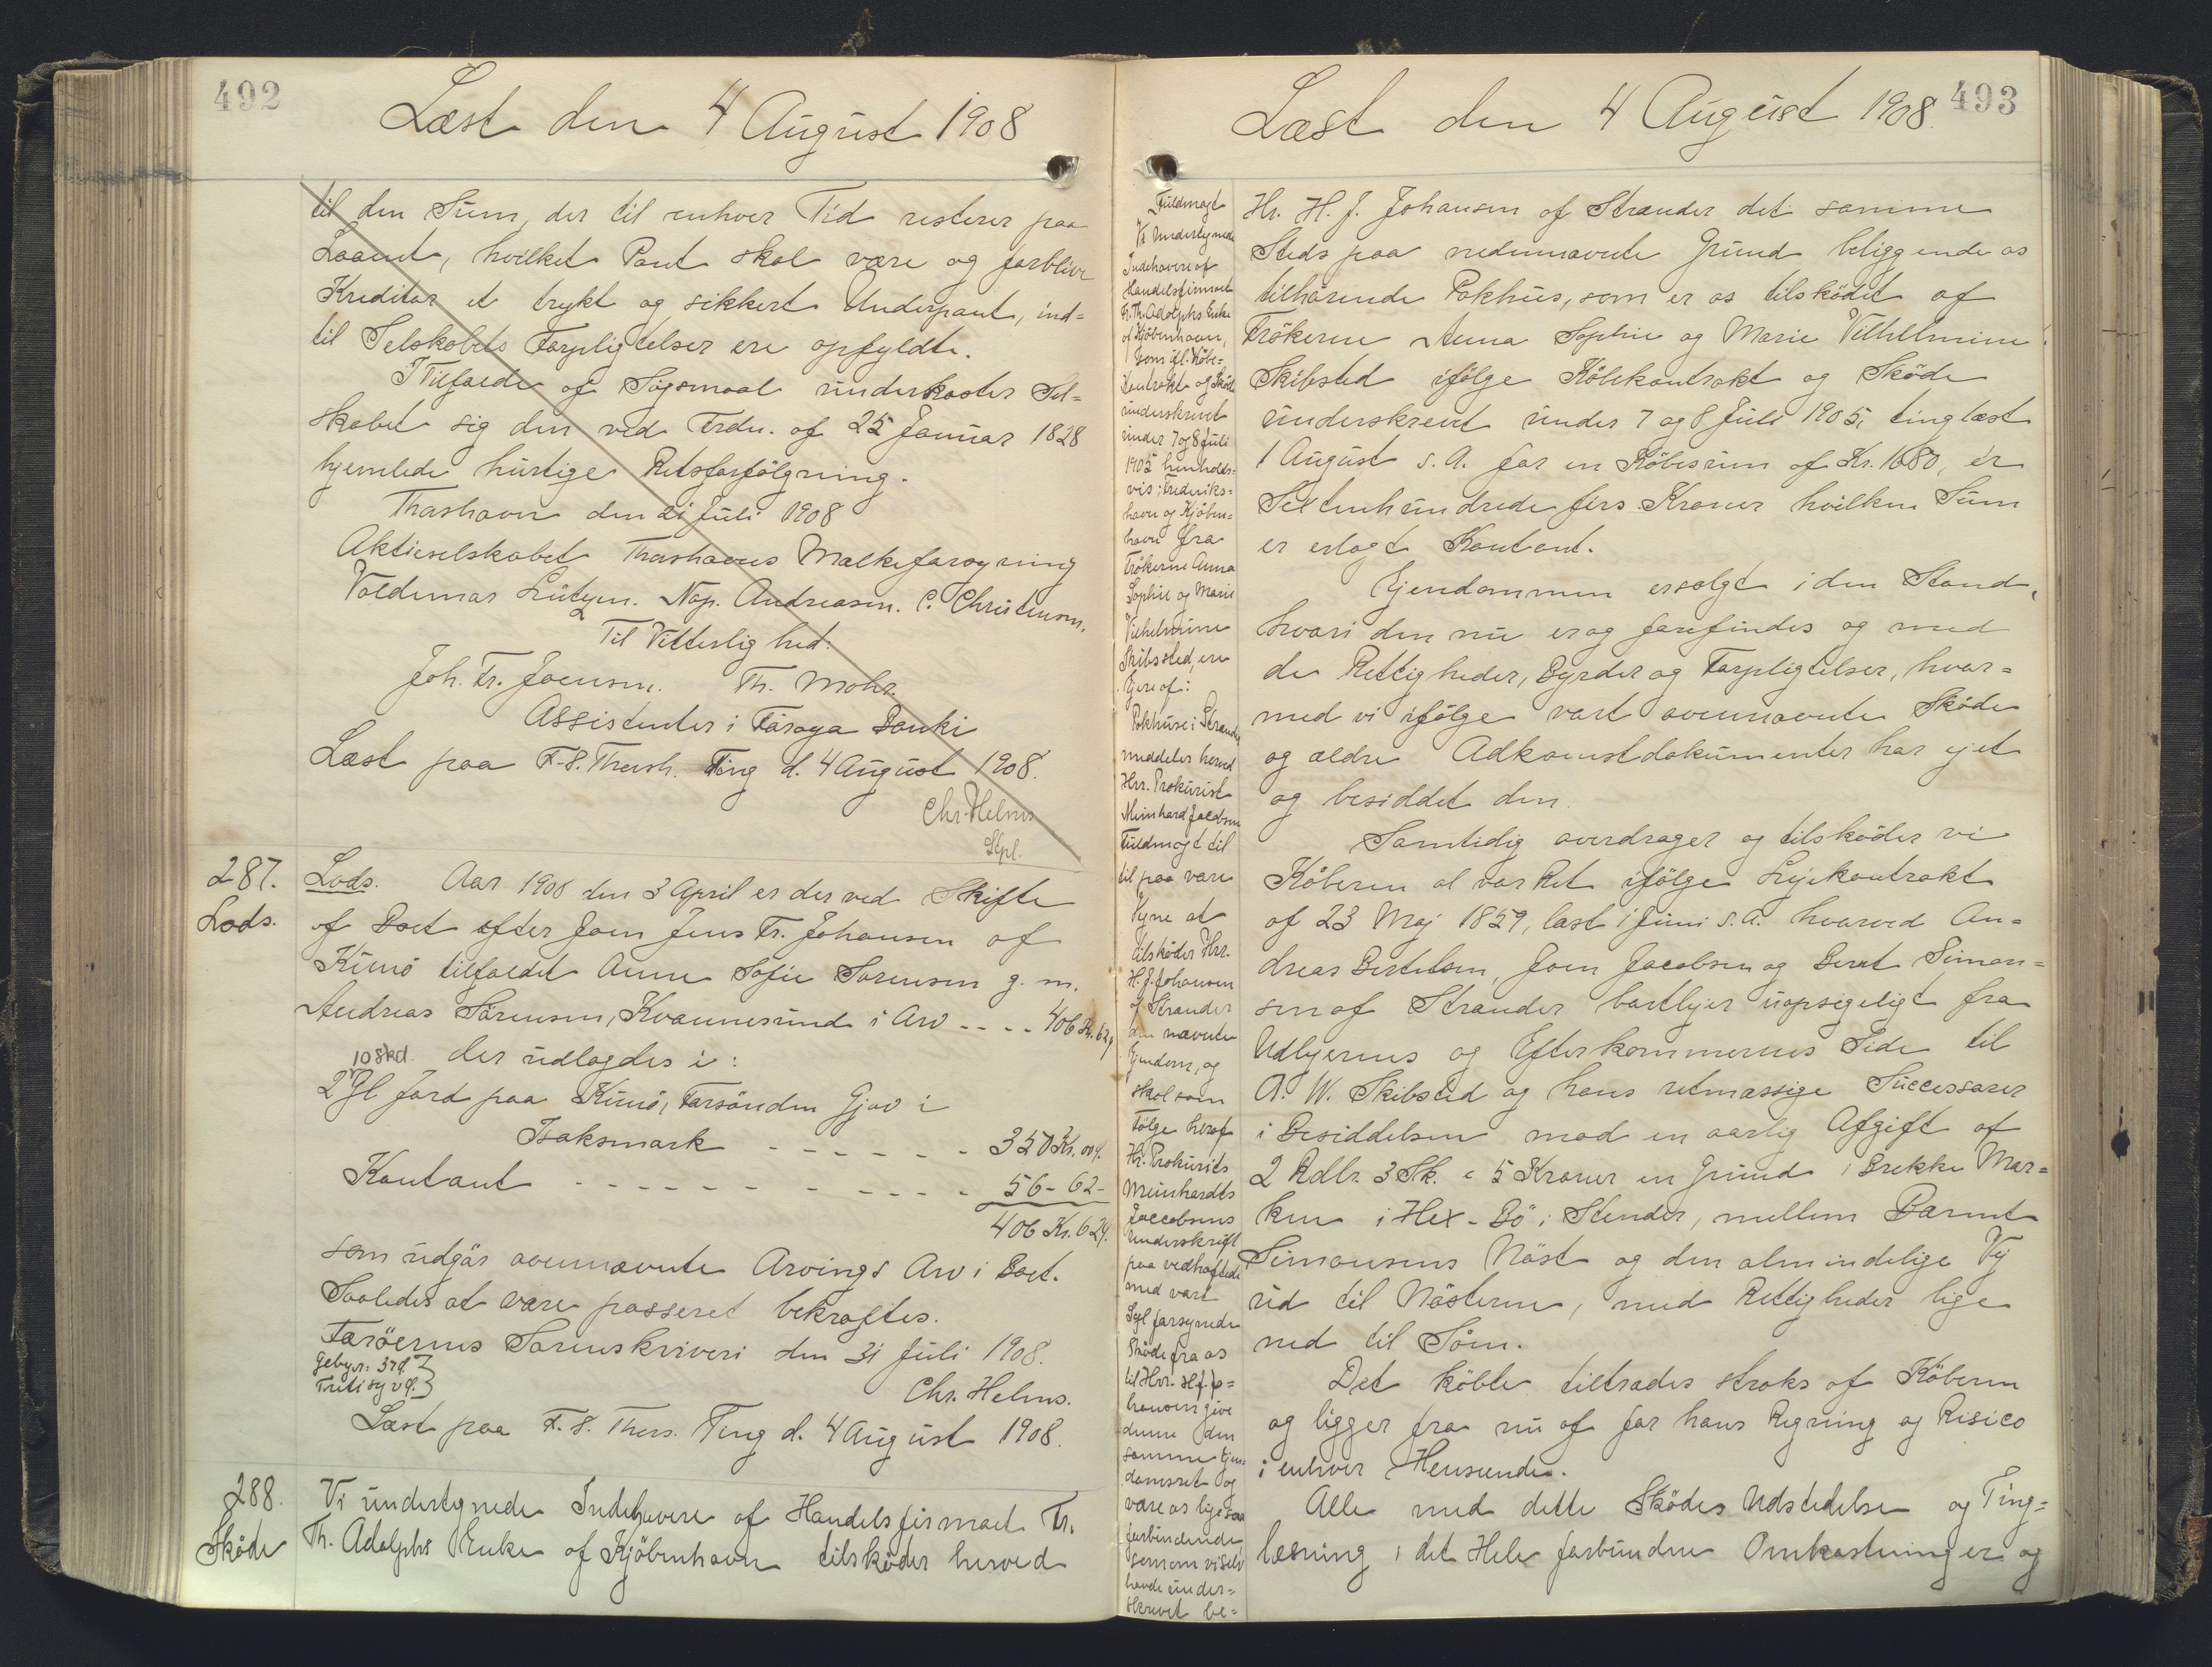 492
Læst den 4 August 1908
til den Sum, der til enhver Tid resterer paa
Laanet, hvilket Pant skal være og forblive
Kreditor et trykt og sikkert Underpant, ind=
til Selskabets Forpligtelser ere opfyldte.
I Tilfælde af Søgsmaal underkaster Sel=
skabet sig den ved Frdn. af 25 Januar 1828
hjemlede hurtige Retsforfölgning.
Thorshavn den 21 Juli 1908
Aktieselskabet Thorshavns Mælkeforsyning
Valdemar Lützen. Nap. Andreasen. C. Christensen.
Til Vitterlighed:
Joh. Fr. Joensen. Th. Mohr.
Assistenter i Færøya Banki
Læst paa F.-S. Thorsh. Ting d. 4 August 1908.
Chr. Helms
Stpl.
287.
Lods.
Lods. Aar 1908 den 3 April er der ved Skifte
af Boet efter Joen Jens Fr. Johansen af
Kunö tilfaldet Anne Sofie Sørensen g. m.
Andreas Sörensen, Kvannesund i Arv ---- 406 Kr. 62 ø
der udlagdes i:
10 Skd.
2 Gl Jord paa Kunö, Forsönden Gjov i
Isaksmark ------ 350 Kr. 00 ø.
Kontant ---------- 56 - 62 -
406 Kr. 62 ø.
som udgör ovennævnte Arvings Arv i Boet.
Saaledes at være passeret bekræftes.
Færöernes Sorenskriveri den 31 Juli 1908.
Gebyr: 37 ø.
Tretisyv ø. }
Chr. Helms.
Læst paa F. S. Thors. Ting d. 4 August 1908.
288.
Sköde
Vi undertegnede Indehavere af Handelsfirmaet Fr.
Th. Adolphs Enke af Kjöbenhavn tilsköder herved
493
Læst den 4 August 1908.
Fuldmagt
Vi undertegnede
Indehavere af
Handelsfirmaet
Fr. Th. Adolphs Enke
af Kjøbenhavn,
som ifl. Købe=
kontrakt og Sköde
underskrevet
under 7 og 8 Juli
1905 henholds=
vis i Frederiks=
havn og Kjöben=
havn fra
Frökerne Anna
Sophie og Marie
Vilhelmine
Skibssted, ere
Ejere af:
Pakhuse i Strænder
meddeles herved
Hrr. Prokurist
Meinhard Jacobsen
Fuldmagt til
til paa vore
Vegne at
tilsköder Hrr.
H. J. Johansen
af Strænder
den nævnte
Ejendom, og
skal som
Følge heraf
Hr. Prokurists
Meinhardts
Jaccobsens
Underskrift
paa vedhæftede
med vort
Segl forsynede
Sköde fra os
til Hrr. H. J. Jo=
hansen give
denne den
samme Ejen=
domsret og
være os ligesaa
forbindende
som om vi selv
havde under=
skrevet be=
Hr. H. J. Johansen af Strænder det samme
Steds paa nedennævnte Grund beliggende os
tilhørende Pakhus, som er os tilsködet af
Frökerne Anna Sophie og Marie Vilhelmine
Skibsted ifölge Köbekontrakt og Sköde
underskrevet under 7 og 8 Juli 1905, tinglæst
1 August s. A. for en Köbesum af Kr. 1680, er
Sextenhundrede firs Kroner hvilken Sum
er erlagt Kontant.
Ejendommen ersolgt i den Stand,
hvori den nu er og forefindes og med
de Rettigheder, Byrder og Forpligtelser, hvor=
med vi ifölge vort ovennævnte Sköde
og ældre Adkomstdokumenter har ejet
og besiddet den.
Samtidig overdrager og tilsköder vi
Köberen al vor Ret ifölge Lejekontrakt
af 23 Maj 1859, læst 1 Juni s. A. hvorved An=
dreas Bertelsen, Joen Jacobsen og Berent Simon=
sen af Strænder bortlejer uopsigeligt fra
Udlejernes og Efterkommernes Side til
A. W. Skibsted og hans retmæssige Successorer
i Besiddelsen mod en aarlig Afgift af
2 Rdlr. 3 Sk. c 5 Kroner en Grund i Brekke Mar=
ken i Hex-Bö i Stender, mellem Barent
Simonsens Nöst og den almindelige Vej
ud til Nösterne, med Rettigheder lige
ned til Söen.
Det köbte tiltrædes straks af Köberen
og ligger fra nu af for hans Regning og Risico
i enhver Henseende.
Alle med dette Sködes Udstedelse og Ting=
læsning i det Hele forbundne Omkostninger og